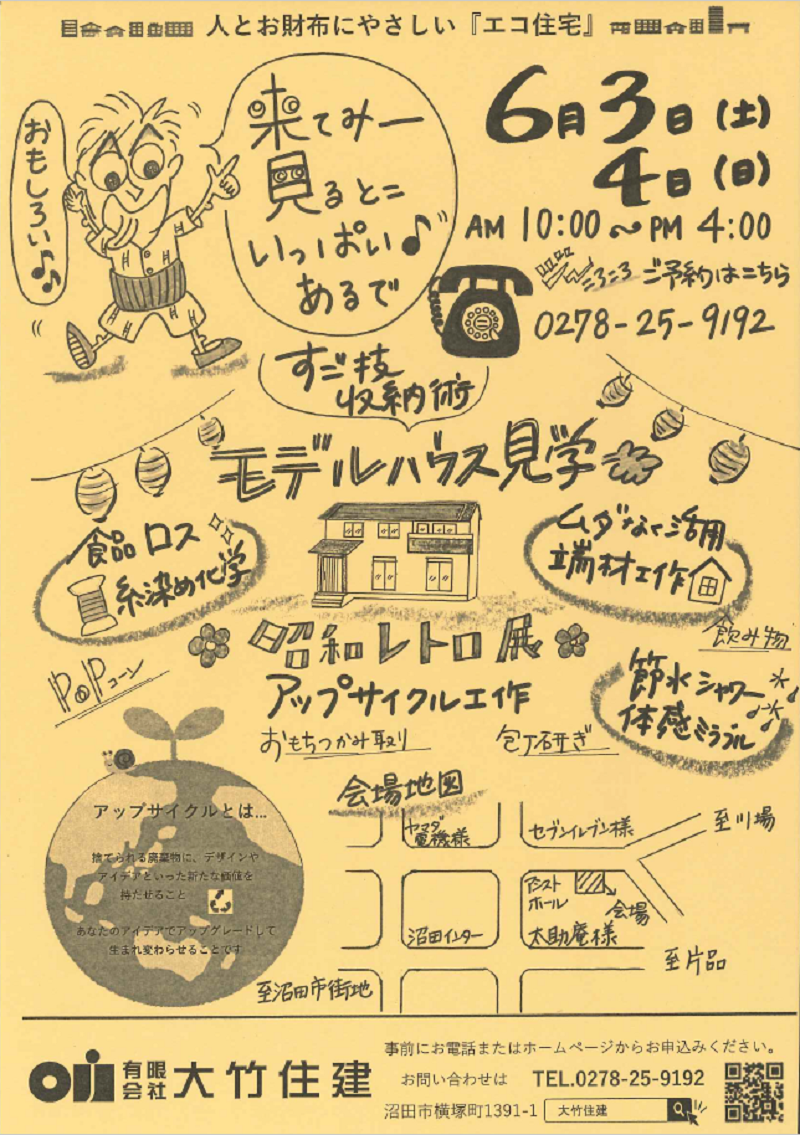 人とお財布にやさしい『エコ住宅』
おもしろい♪♪
来てみー
見るとこ
いっぱい♪
あるで
6月3日(土)
4日(日)
AM 10:00〜PM 4:00
ご予約はこちら
0278-25-9192
すご技
収納術
モデルハウス見学
食品ロス
糸染め化学
ムダなく活用
端材工作
昭和レトロ展
アップサイクル工作
飲み物
POPコーン
節水シャワー
体感ミラブル
おもちつかみ取り
包丁研ぎ
アップサイクルとは...
捨てられる廃棄物に、デザインや
アイデアといった新たな価値を
持たせること
あなたのアイデアでアップグレードして
生まれ変わらせることです
会場地図
ヤマダ
電機様
セブンイレブン様
至川場
アシスト
ホール
会場
沼田インター
太助庵様
至片品
至沼田市街地
事前にお電話またはホームページからお申込みください。
有限会社 大竹住建
お問い合わせは TEL.0278-25-9192
沼田市横塚町1391-1 大竹住建